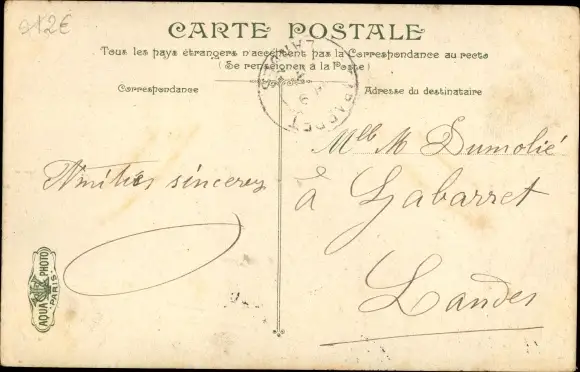 212€
CARTE POSTALE
Tous les pays étrangers n'acceptent pas la Correspondance au recto
(Se renseigner à la Poste)
Correspondance
Adresse du destinataire
Amitiés sincères
Mlle M Dumolié
à Gabarret
Landes
GABARRET
LANDES
AQUA PHOTO
PARIS